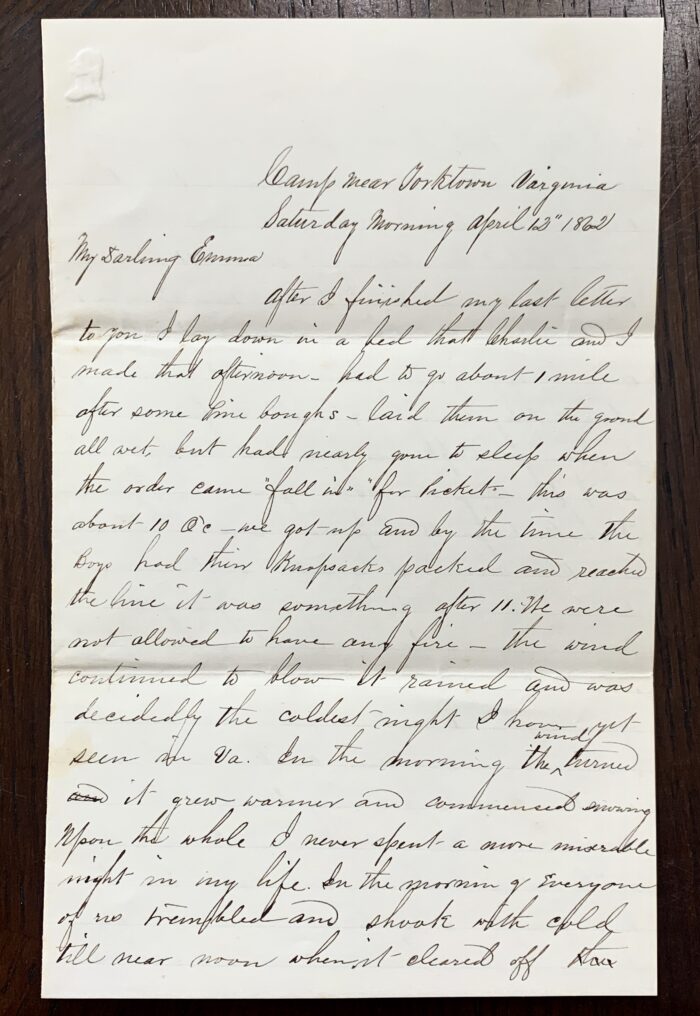 Camp near Yorktown Virginia
Saturday Morning April 12" 1862
My Darling Emma
After I finished my last letter
to you I lay down in a bed that Charlie and I
made that afternoon - had to go about 1 mile
after some pine boughs - laid them on the ground
all wet, but had nearly gone to sleep when
the order came "fall in" "for Picket" - this was
about 10 Oc - we got up and by the time the
Boys had their Knapsacks packed and reached
the line it was something after 11. We were
not allowed to have any fire - the wind
continued to blow it rained and was
decidedly the coldest night I have yet
seen in Va. In the morning the wind turned
and it grew warmer and commenced snowing
Upon the whole I never spent a more miserable
night in my life. In the morning Everyone
of us trembled and shook with cold
till near noon when it cleared off